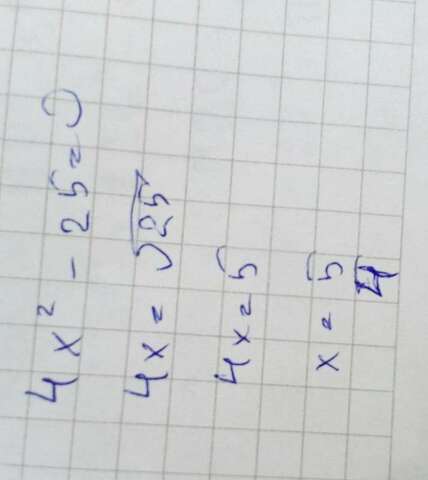 4x² - 25 = 0
4x = √25
4x = 5
x = 5/4